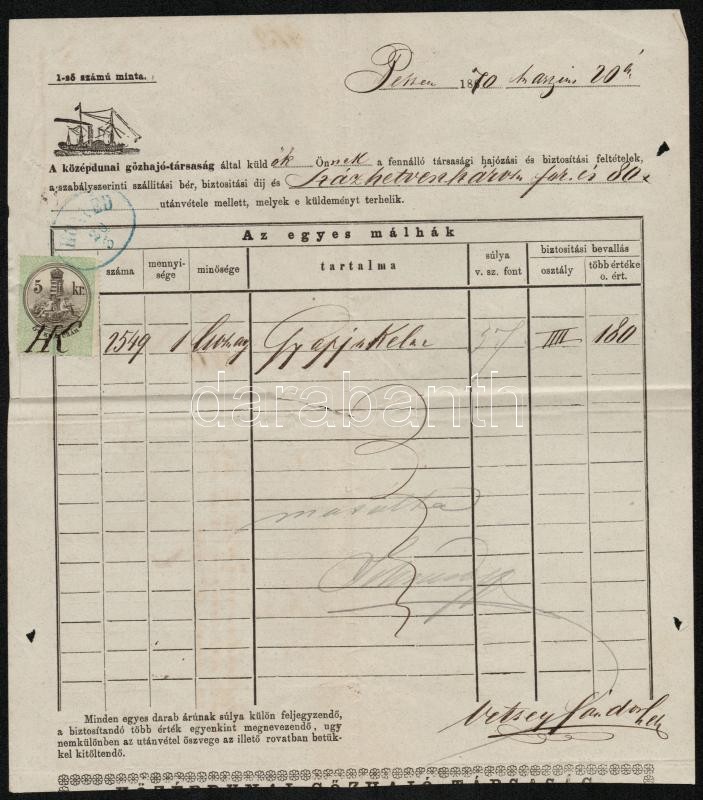 1-ső számú minta.
Pesten 1870 Marzius 20án
A középdunai gőzhajó-társaság által küldök Önnek a fennálló társasági hajózási és biztositási feltételek,
a szabályszerinti szállitási bér, biztositási dij és Százhetvenhárom for. és 80
utánvétele mellett, melyek e küldeményt terhelik.
Az egyes málhák
száma mennyisége minősége tartalma súlya v. sz. font biztositási bevallás
osztály több értéke o. ért.
5 kr.
2549 1 57 IIII 180
darabanth
Minden egyes darab árúnak súlya külön feljegyzendő,
a biztositandó több érték egyenkint megnevezendő, ugy
nemkülönben az utánvétel öszvege az illető rovatban betük-
kel kitöltendő.
Vetsey Sándor
KÖZÉPDUNAI GŐZHAJÓ TÁRSASÁG